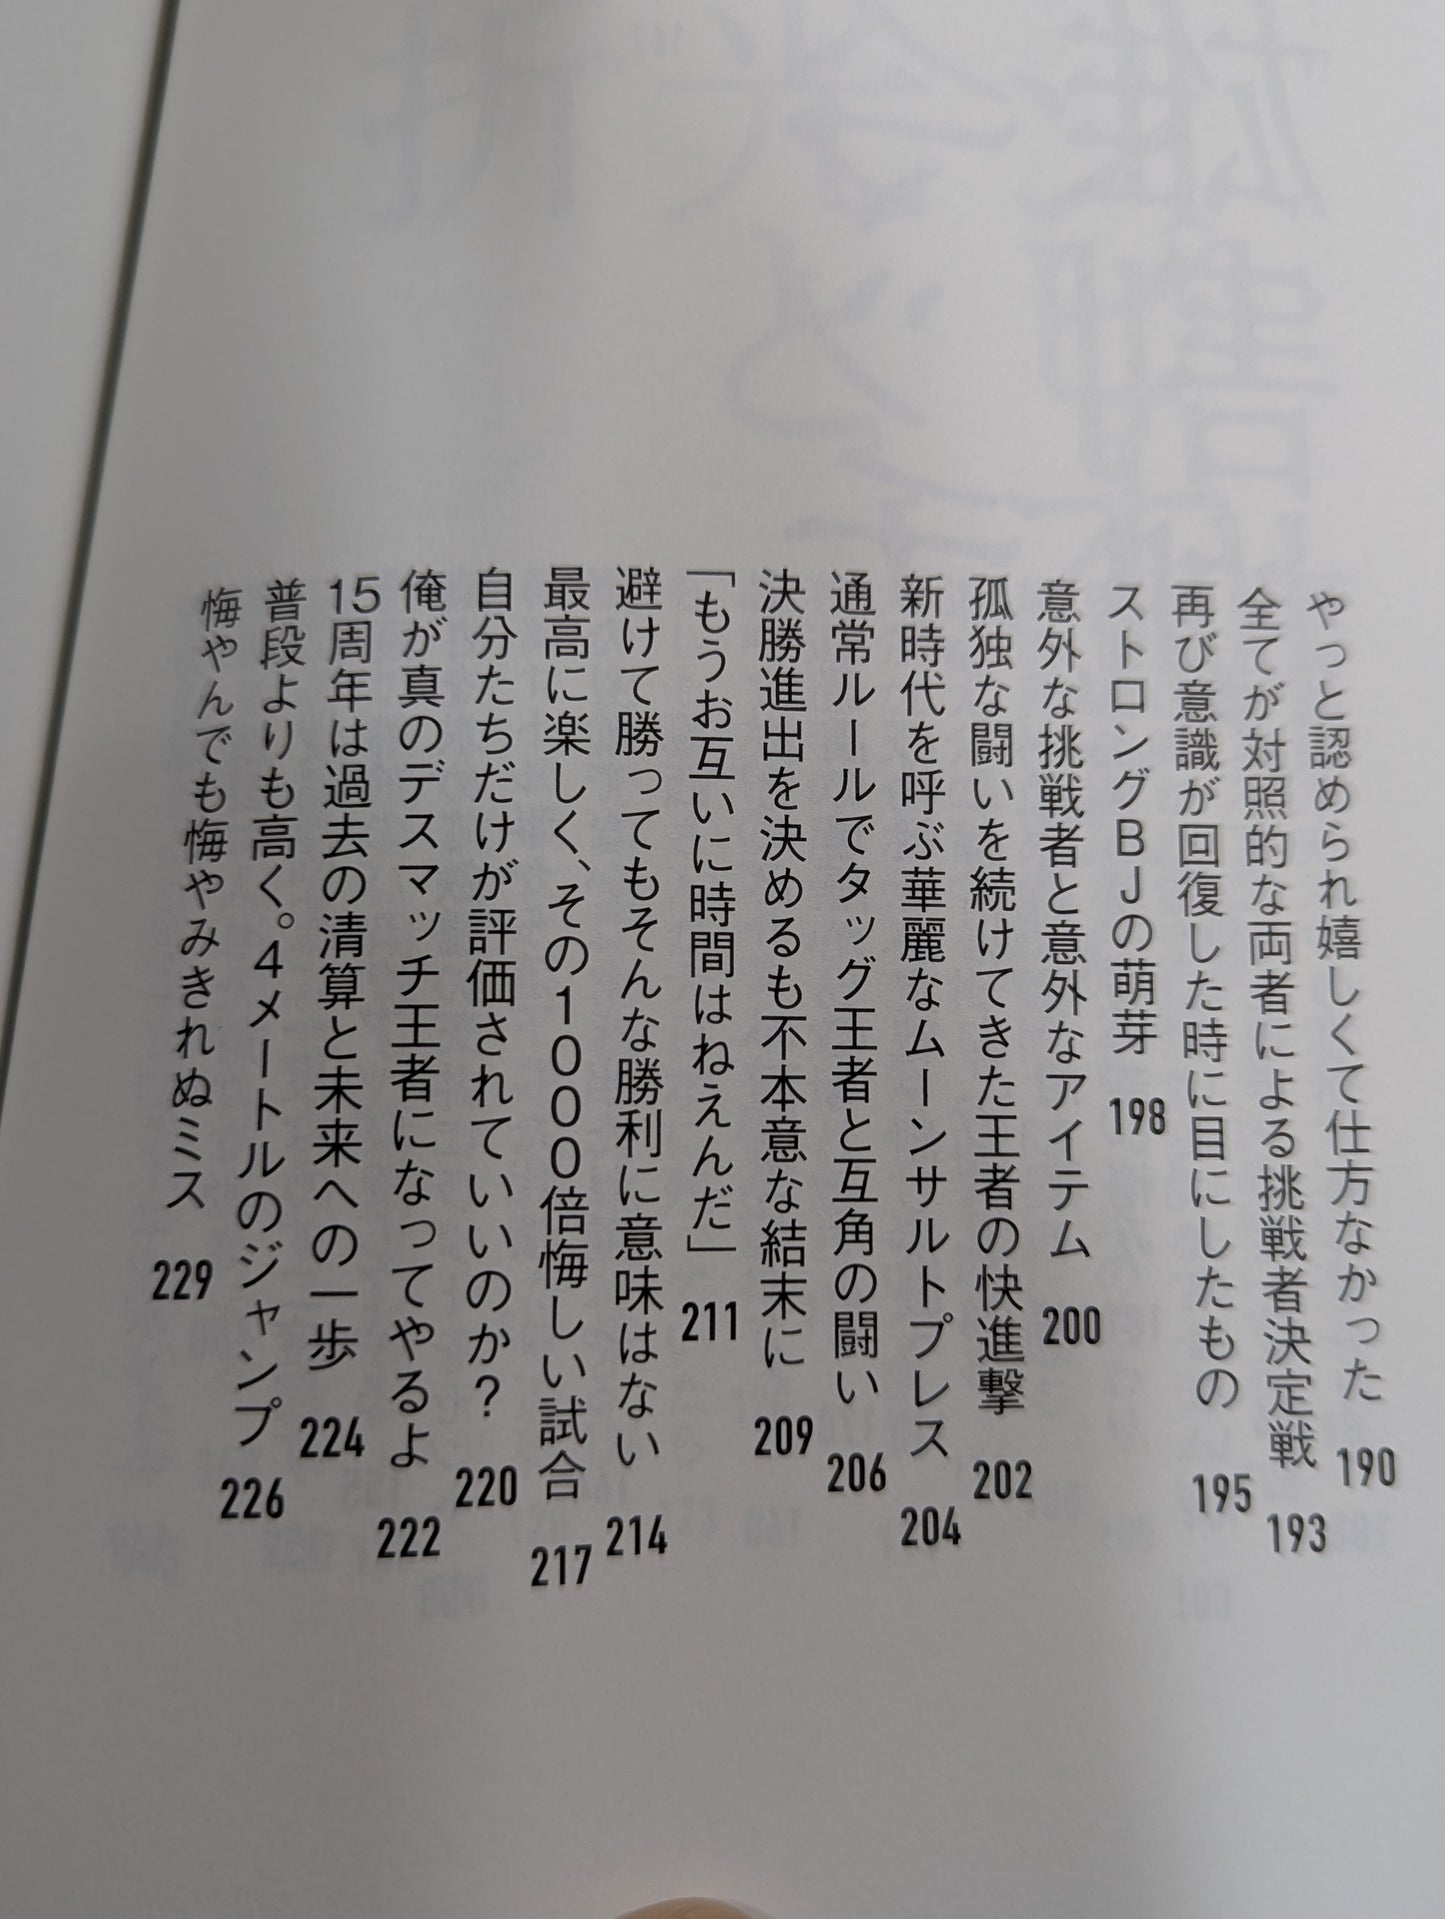 やっと認められ嬉しくて仕方なかった 190
全てが対照的な両者による挑戦者決定戦 193
再び意識が回復した時に目にしたもの 195
ストロングBJの萌芽 198
意外な挑戦者と意外なアイテム 200
孤独な闘いを続けてきた王者の快進撃 202
新時代を呼ぶ華麗なムーンサルトプレス 204
通常ルールでタッグ王者と互角の闘い 206
決勝進出を決めるも不本意な結末に 209
「もうお互いに時間はねえんだ」 211
避けて勝ってもそんな勝利に意味はない 214
最高に楽しく、その1000倍悔しい試合 217
自分たちだけが評価されていいのか? 220
俺が真のデスマッチ王者になってやるよ 222
15周年は過去の清算と未来への一歩 224
普段よりも高く。4メートルのジャンプ 226
悔やんでも悔やみきれぬミス 229